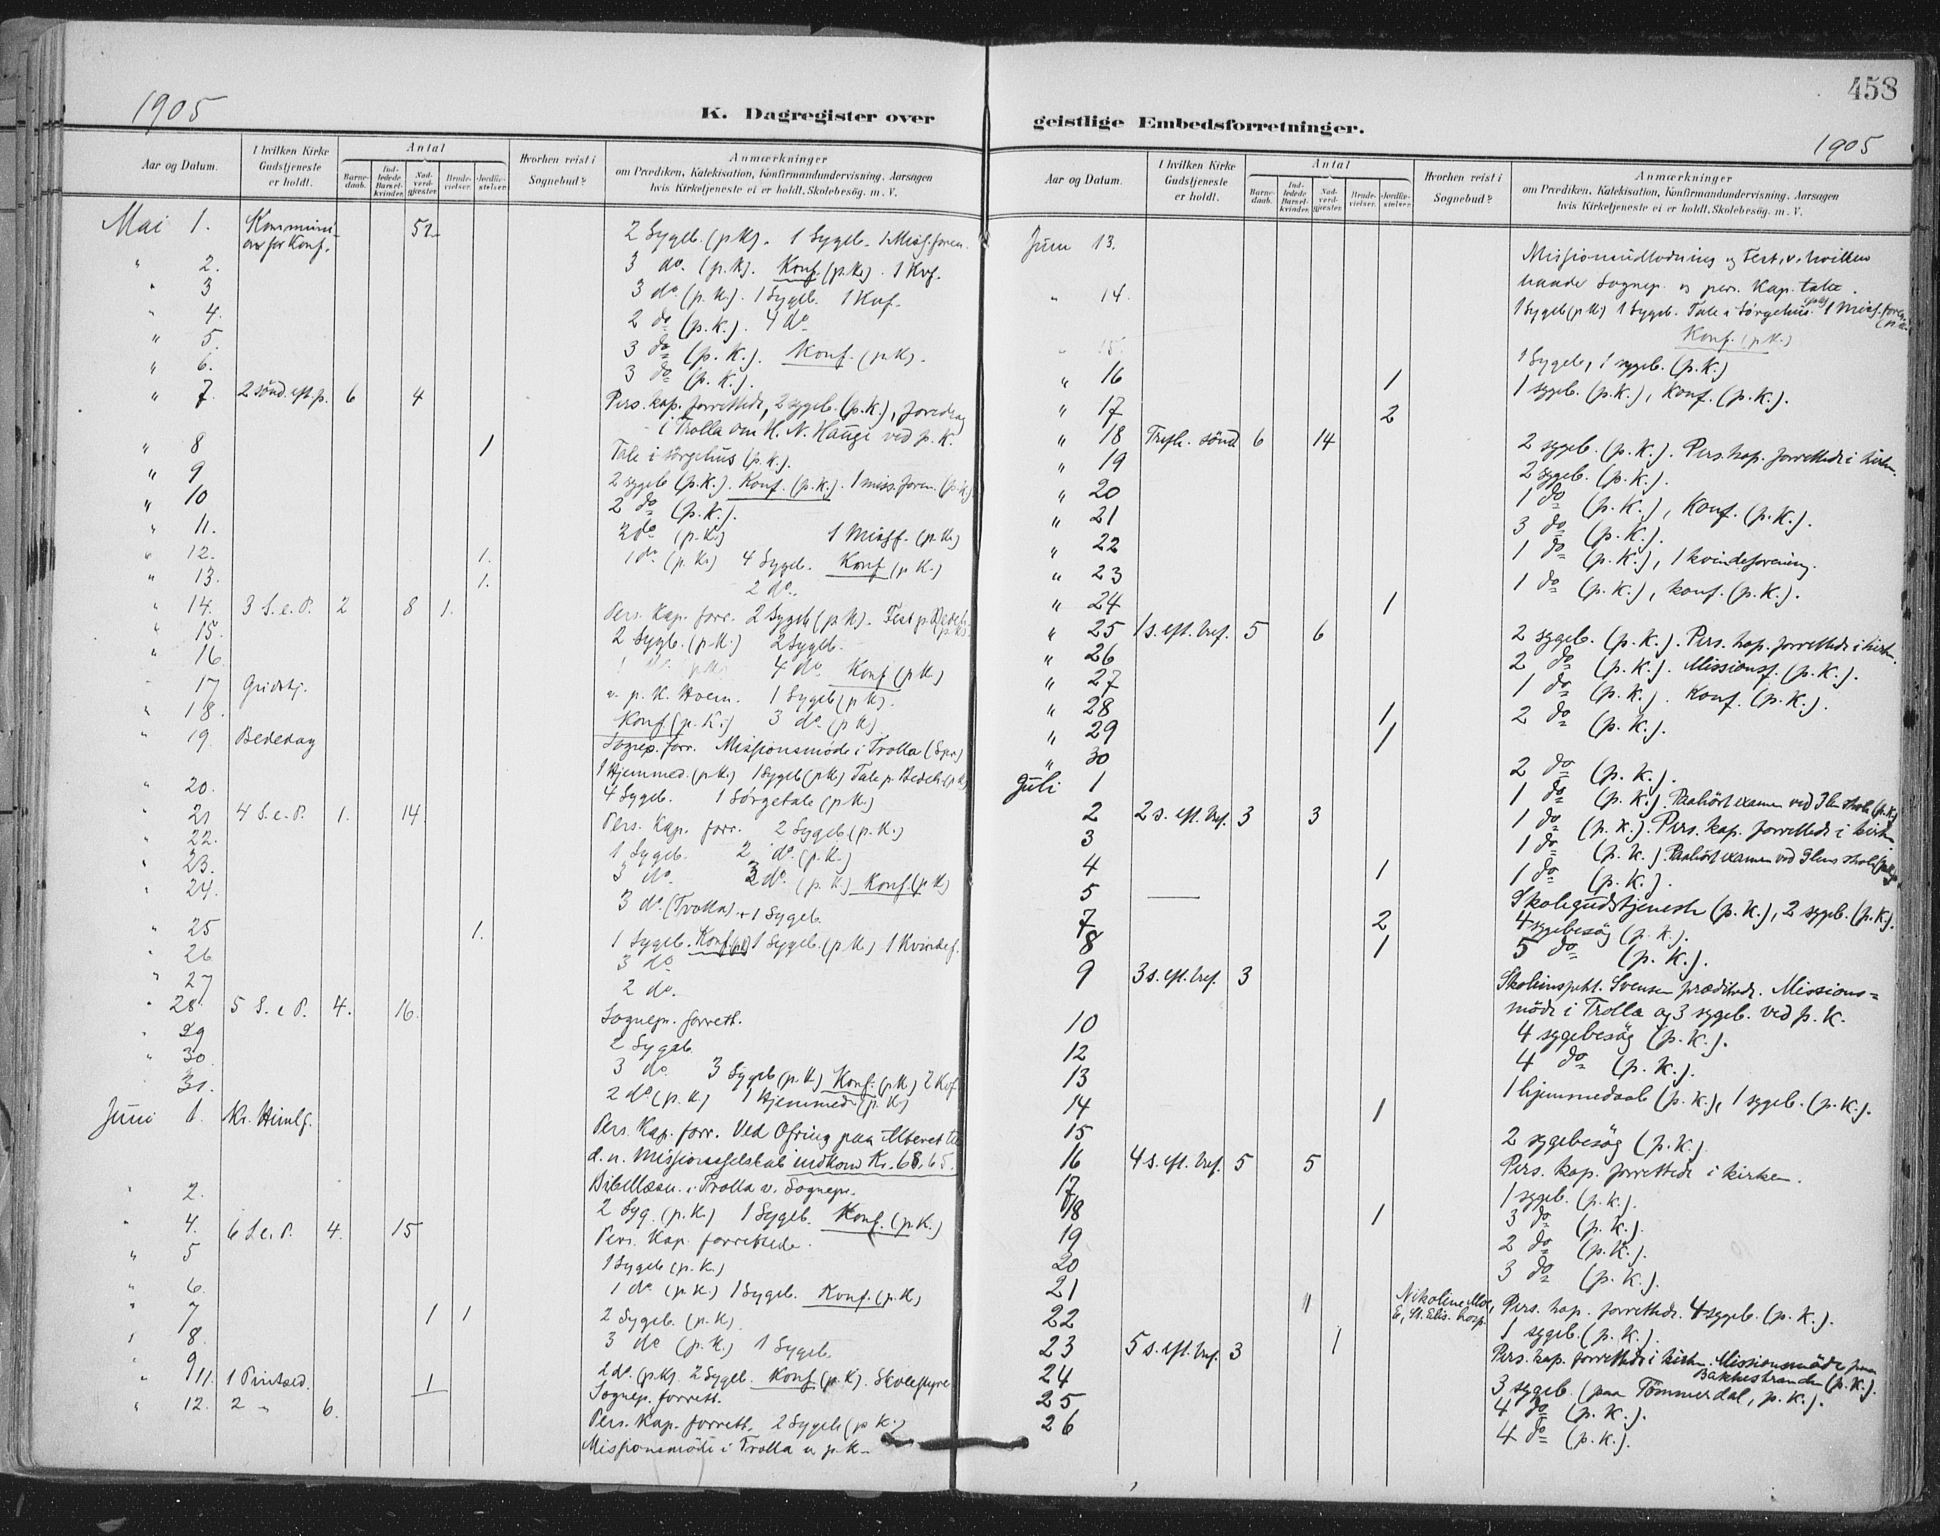 1905
K. Dagregister over
Aar og Datum.
I hvilken Kirke Gudstjeneste er holdt.
Antal
Barnedaab.
Indledede Barselkvinder.
Nadverdgjester.
Brudevielser.
Jordfæstelser.
Hvorhen reist i Sognebud?
Anmærkninger
om Prædiken, Katekisation, Konfirmandundervisning, Aarsagen
hvis Kirketjeneste ei er holdt, Skolebesøg. m. V.
Mai 1. Kommunion for Konf. 52 2 Sygeb. (p.K). 1 Sygeb. 1 Miss.foren.
" 2. 3 do. (p.K). Konf. (p.K.). 1 Kvf.
" 3 3 do. (p.K.). 1 Sygeb. 1 Kvf.
" 4. 2 do (p.K.). 4 do
" 5. 3 do (p.K.). Konf. (p.K).
" 6. 3 do (p.K.).
" 7. 2 sønd. eft. p. 6 4 Pers. kap. forrettede, 2 sygeb. (p.K.), foredrag
i Trolla om H. N. Hauge ved p. K.
" 8 1 Tale i sørgehus (p.K.).
" 9 2 sygeb. (p.K.). Konf. (p.K.). 1 miss.foren. (p.K.)
" 10 2 do (p.K.).
" 11. 2 do (p.K.) 1 Missf. (p.K.)
" 12. 1. 1 do. (p.K.) 4 Sygeb. Konf (p.K.)
" 13. 1. 2 do.
" 14. 3 S.e.P. 2 8 1. Pers. Kap. forr. 2 Sygeb (p.K). Fest p.
" 15. 2 Sygb. (p.K.) 2 Sygeb.
" 16. 1 do. p.K. 4 do. Konf (p.K.)
" 17 Gudstj. v. p.K. Hoem. 1 Sygeb (p.K).
" 18. Konf (p.K.) 3 do. (p.K)
" 19. Bededag Sognep. forr. Missionsmøde i Trolla (Spr)
1 Hjemmed. (p.K.) 1 Sygeb (p.K) Tale p.
" 20. 4 Sygeb. 1 Sørgetale (p.K.)
" 21 4 S.e.P. 1. 14. Pers. Kap. forr. 2 Sygeb (p.K.)
" 22. 1 Sygeb. 2 do. (p.K.)
" 23. 3 do. 2 do. (p.K.) Konf. (p.K)
" 24. 3 do. (Trolla) + 1 Sygeb.
" 25 1. 1 Sygeb. Konf. (p.K) 1 Sygeb. (p.K.) 1 Kvindef.
" 26 3 do
" 27 2 do.
" 28. 5 S.e.P. 4. 16. Sognepr. forrett.
" 29 2 Sygeb.
" 30. 3 do. 3 Sygeb (p.K.) Konf. (p.K.) 2 Kvf.
" 31. 2 do (p.K.) 1 Hjemmed (p.K.)
Juni 1. Kr. Himlf. Pers. Kap. forr. Ved Ofring paa Alteret til
d. n. Missionsselskab indkom Kr. 68,65.
Bibellæsn. i Trolla v. Sognepr.
" 2. 2 Syg. (p.K.) 1 Sygeb. Konf. (p.K.)
" 4. 6 S.e.P. 4. 15 Pers. Kap. forrettede.
" 5 1 Sygeb (p.K.)
" 6. 1 do. (p.K.) 1 Sygeb. Konf. (p.K.)
" 7 1 1 2 Sygeb. (p.K).
" 8. 3 do (p.K.) 1 Sygeb.
" 9 2 do. (p.K). 2 Sygeb. Konf (p.K). Skolestyre
11. 1 Pintsed. 1 Sognep. forrett.
" 12. 2 " 6. Pers. Kap. forrett. 2 Sygeb (p.K.)
Missionsmöde i Trolla v. p.K.
458
1905
geistlige Embedsforretninger.
Aar og Datum.
I hvilken Kirke Gudstjeneste er holdt.
Antal
Barnedaab.
Indledede Barselkvinder.
Nadverdgjester.
Brudevielser.
Jordfæstelser.
Hvorhen reist i Sognebud?
Anmærkninger
om Prædiken, Katekisation, Konfirmandundervisning, Aarsagen
hvis Kirketjeneste ei er holdt, Skolebesøg. m. V.
Juni 13. Missionsudlodning og Fest, v. hvilken
baade Sognep. og pers. Kap. talte.
" 14. 1 Sygeb (p.K) 1 Sygeb. Tale i Sørgehus. (p.K) 1 Miss.foren. (p.K.
Konf. (p.K.)
" 15. 1 Sygeb, 1 sygeb. (p.K.)
" 16 1 1 sygeb. (p.K.), Konf. (p.K.).
" 17 2
" 18 Trefh. sönd 6 14 2 sygeb. (p.K.). Pers. kap. forrettede i kirken.
" 19 2 sygeb. (p.K.).
" 20 1 do (p.K.), Konf. (p.K.).
" 21 3 do (p.K.).
" 22 1 do (p.K.), 1 kvindeforening.
" 23 1 do (p.K.), konf. (p.K.).
" 24 1
" 25 1 s. eft. tref. 5 6 2 sygeb. (p.K.). Pers. kap. forrettede i kirken.
" 26 2 do (p.K.). Missionsf. (p.K.).
" 27 1 do (p.K.). Konf. (p.K.).
" 28 1 2 do (p.K.).
" 29 1
" 30 2 do (p.K.).
Juli 1 1 do (p.K.). Paahört examen ved Ilen skole (p.K.)
2 2 s. eft. tref. 3 3 1 do (p.K.). Pers. kap. forrettede i kirken
3 1 do (p.K.). Paahört examen ved Ilens skole
4 1 1 do (p.K.).
5 Skolegudstjeneste (p.K.), 2 sygeb. (p.K.).
7 2 4 sygebesøg (p.K.).
8 1 5 do (p.K.).
9 3 s. eft. tref. 3 Skoleinspekt. Svensen prædikede. Missions=
möde i Trolla og 3 sygeb. ved p.K.
10 4 sygebesög (p.K.).
12 4 do (p.K.).
13 1 hjemmedaab (p.K.), 1 sygeb. (p.K.).
14 1
15 2 sygebesög (p.K.)
16 4 s. eft. tref. 5 5 Pers. kap. forrettede i kirken.
17 1 sygeb. (p.K.).
18 1 3 do (p.K.).
19 2 do (p.K.).
20 3 do (p.K.).
21 1 Nikoline Moe, E, St. Elis. hosp. Pers. kap. forrettede. 4 sygeb. (p.K.).
22 1 sygeb. (p.K.).
23 5 s. eft. tref. 3 1 Pers. kap. forrettede i kirken. Missionsmöde paa
Bakkestranden (p.K.).
24 3 sygeb. (paa Tömmerdal, p.K.).
25 4 do (p.K.).
26 4 do (p.K.).